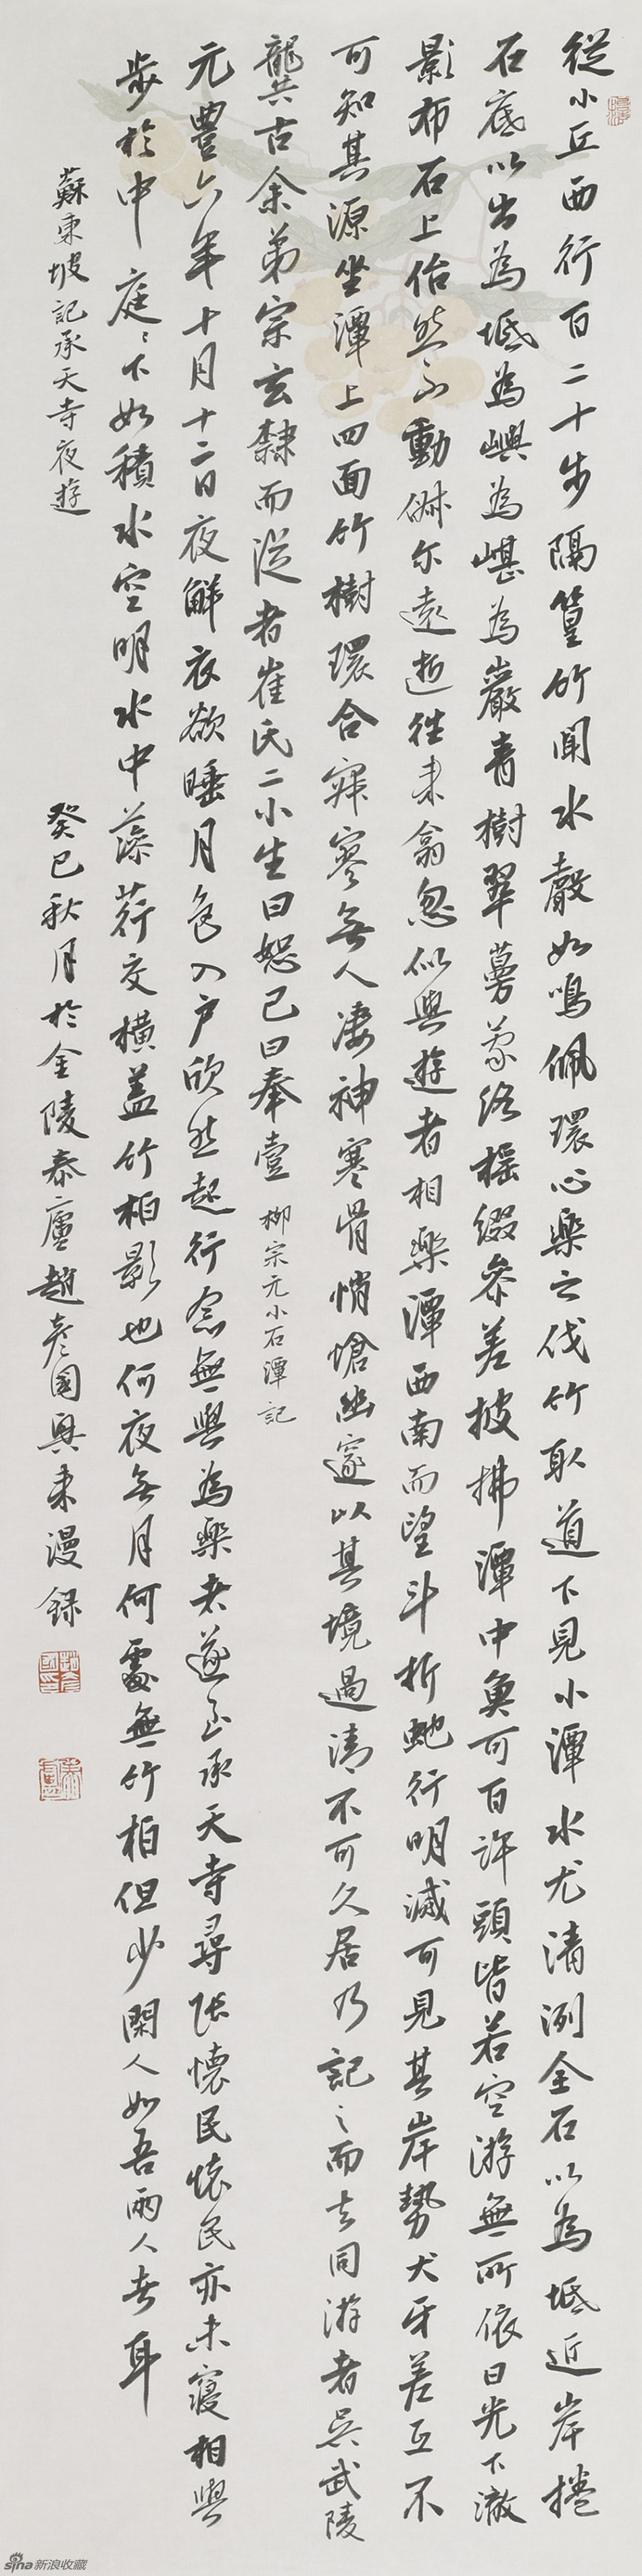 從小丘西行百二十步隔篁竹聞水聲如鳴佩環心樂之伐竹取道下見小潭水尤清洌全石以為坻近岸捲
石底以出為坻為嶼為嵁為巖青樹翠蔓蒙絡搖綴參差披拂潭中魚可百許頭皆若空游無所依日光下澈
影布石上佁然不動俶尔遠逝往来翕忽似與遊者相樂潭西南而望斗折蛇行明滅可見其岸勢犬牙差互不
可知其源坐潭上四面竹樹環合寂寥無人淒神寒骨悄愴幽邃以其境過清不可久居乃記之而去同游者吳武陵
龔古余弟宗玄隸而從者崔氏二小生曰恕己曰奉壹 柳宗元小石潭記
元豐六年十月十二日夜解衣欲睡月色入户欣然起行念無與為樂者遂至承天寺尋張懷民懷民亦未寢相與
步於中庭〻下如積水空明水中藻荇交橫蓋竹柏影也何夜無月何處無竹柏但少閑人如吾兩人者耳
蘇東坡記承天寺夜遊
癸巳秋月於金陵泰廬趙彥國興来漫錄
sina新浪收藏